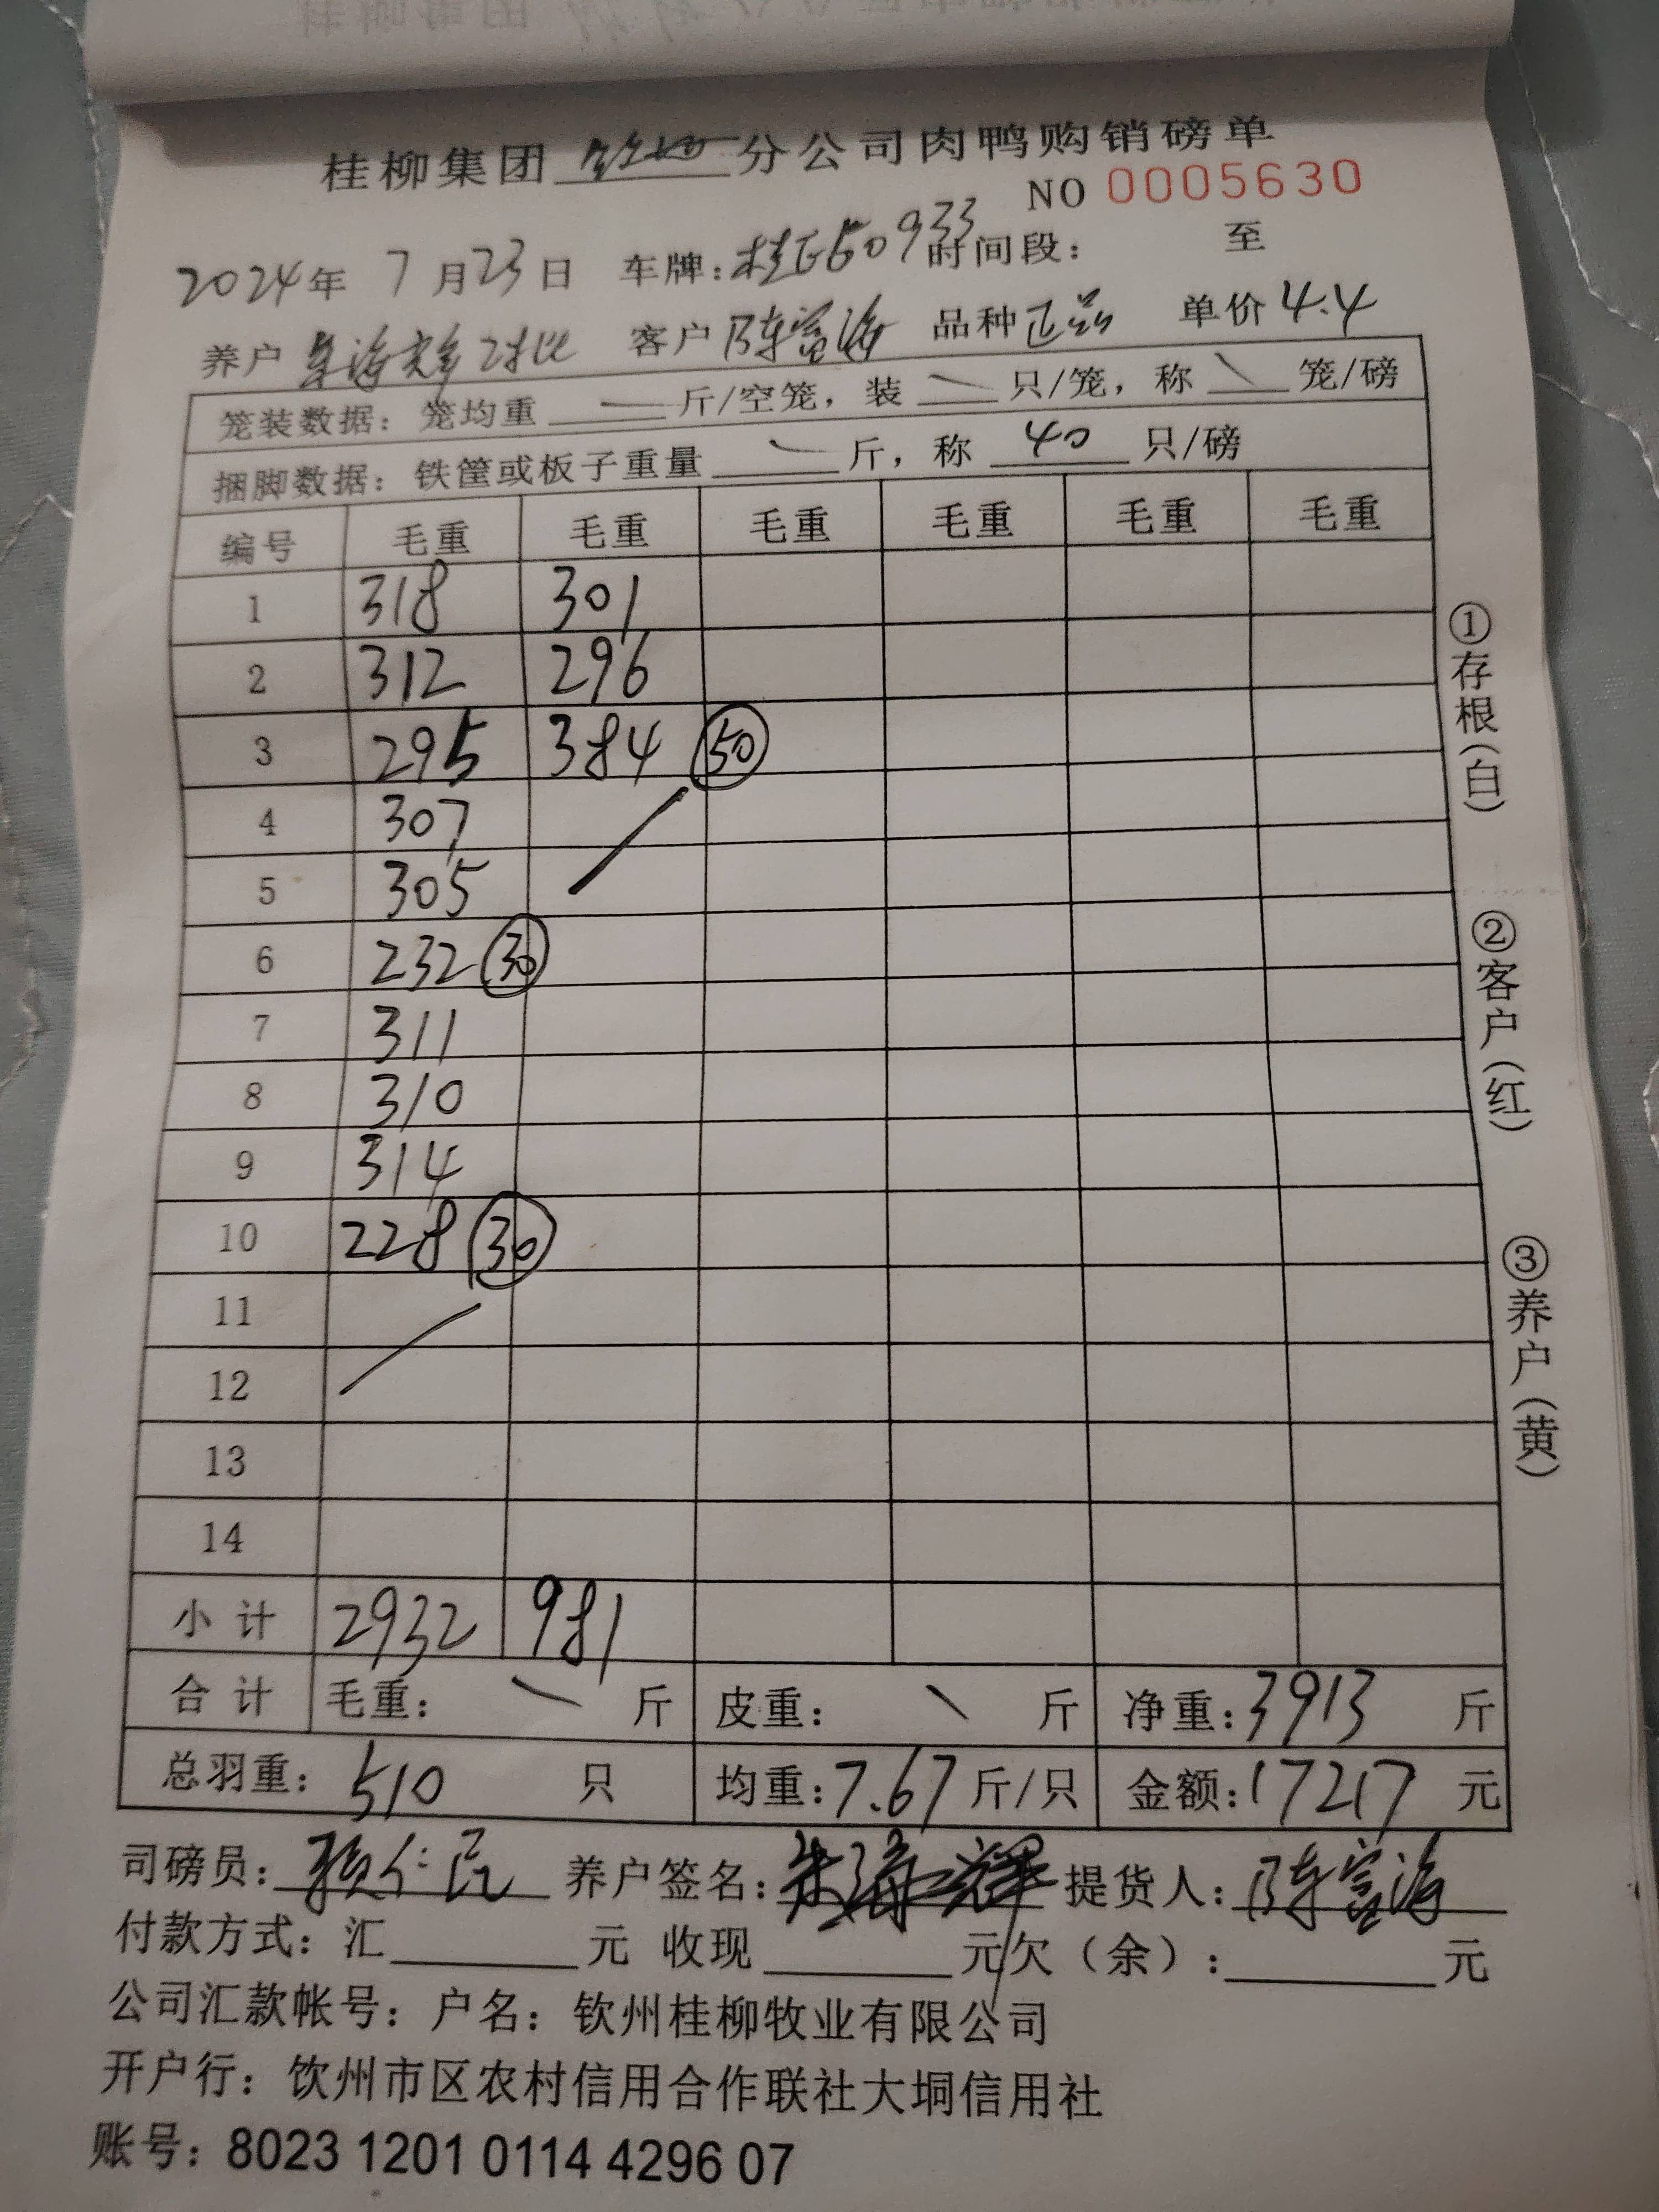 桂柳集团 分公司肉鸭购销磅单
NO 0005630
2024年 7月23日 车牌:桂E50933 时间段: 至
养户 朱海辉 客户 陈富海 品种 正品 单价 4.4
笼装数据: 笼均重 — 斤/空笼, 装 \ 只/笼, 称 \ 笼/磅
捆脚数据: 铁筐或板子重量 \ 斤, 称 40 只/磅
编号 毛重 毛重 毛重 毛重 毛重 毛重
1 318 301
2 312 296
3 295 384 50
4 307
5 305
6 232 30
7 311
8 310
9 314
10 228 30
11
12
13
14
小计 2932 981
合计 毛重: \ 斤 皮重: \ 斤 净重:3913 斤
总羽重: 510 只 均重:7.67斤/只 金额:17217 元
司磅员: 养户签名:朱海辉 提货人:陈富海
付款方式: 汇 元 收现 元 欠(余): 元
公司汇款帐号: 户名: 钦州桂柳牧业有限公司
开户行: 饮州市区农村信用合作联社大垌信用社
账号: 8023 1201 0114 4296 07
①存根(白)
②客户(红)
③养户(黄)